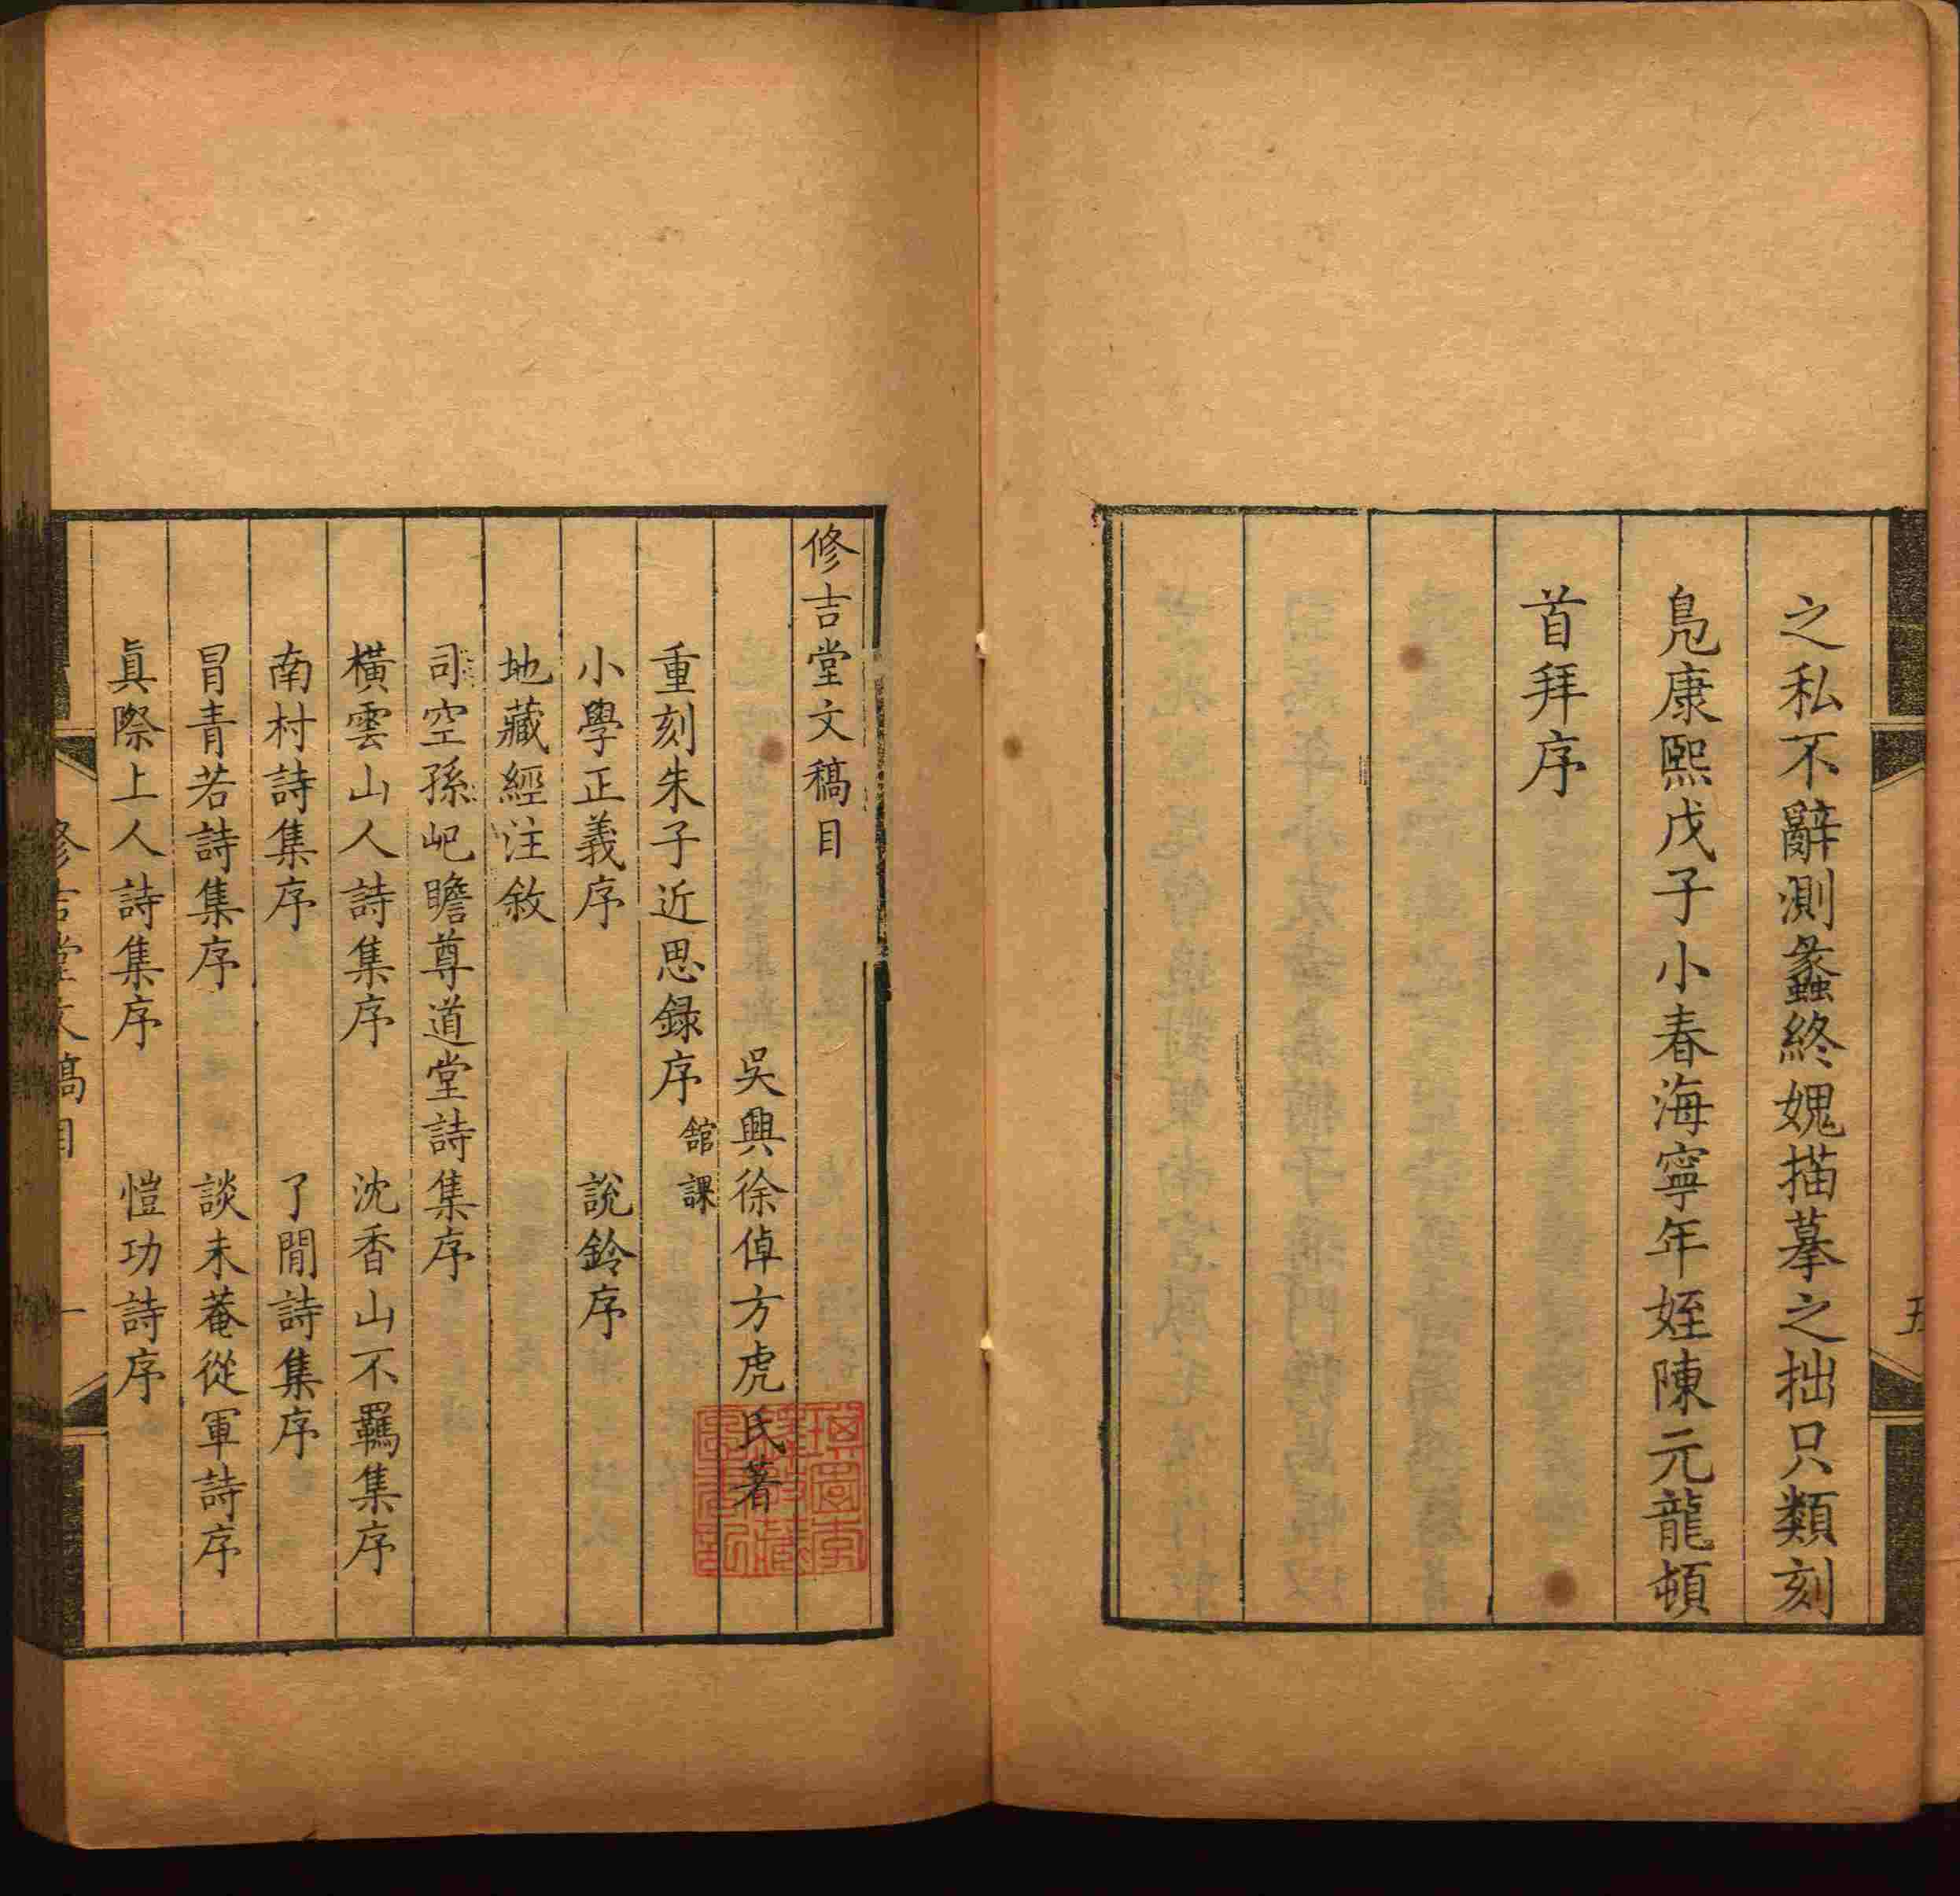 之私不辭測蠡終媿描摹之拙只類刻
鳧康熙戊子小春海寧年姪陳元龍頓
首拜序
五
修吉堂文稿目
吳興徐倬方虎氏著
重刻朱子近思録序 館課
小學正義序 說鈴序
地藏經注敘
司空孫屺瞻尊道堂詩集序
橫雲山人詩集序 沈香山不羈集序
南村詩集序 了閒詩集序
冒青若詩集序 談未菴從軍詩序
眞際上人詩集序 愷功詩序
修吉堂文稿目 一